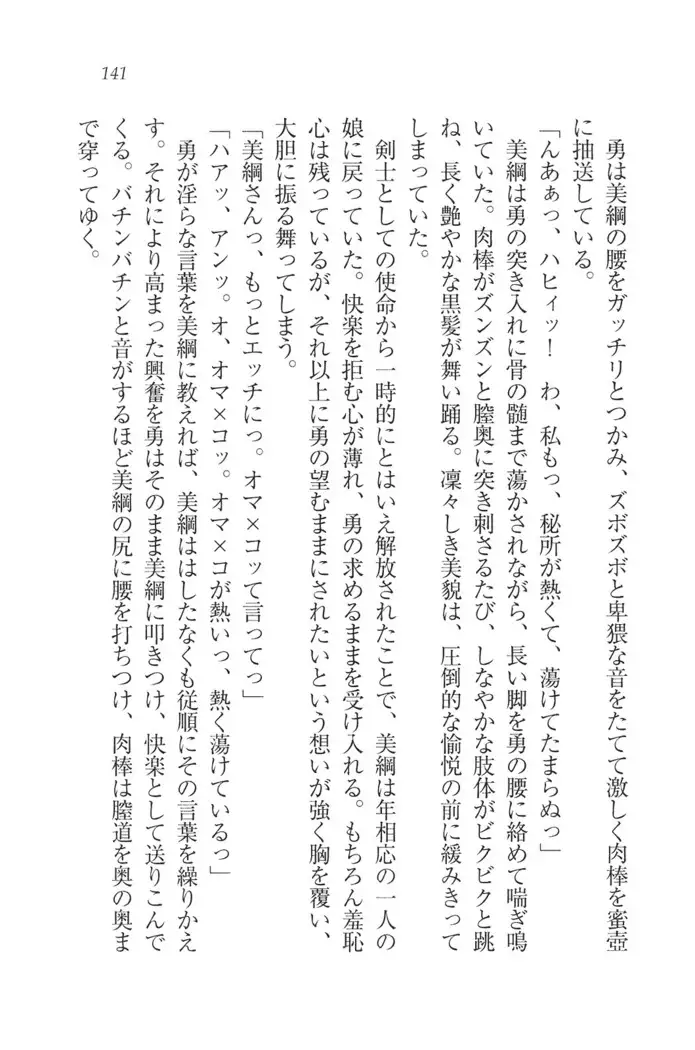 141
勇は美綱の腰をガッチリとつかみ、ズボズボと卑猥な音をたてて激しく肉棒を蜜壺
に抽送している。
「んあぁっ、ハヒィッ！　わ、私もっ、秘所が熱くて、蕩けてたまらぬっ」
美綱は勇の突き入れに骨の髄まで蕩かされながら、長い脚を勇の腰に絡めて喘ぎ鳴
いていた。肉棒がズンズンと膣奥に突き刺さるたび、しなやかな肢体がビクビクと跳
ね、長く艶やかな黒髪が舞い踊る。凜々しき美貌は、圧倒的な愉悦の前に緩みきって
しまっていた。
剣士としての使命から一時的にとはいえ解放されたことで、美綱は年相応の一人の
娘に戻っていた。快楽を拒む心が薄れ、勇の求めるままを受け入れる。もちろん羞恥
心は残っているが、それ以上に勇の望むままにされたいという想いが強く胸を覆い、
大胆に振る舞ってしまう。
「美綱さんっ、もっとエッチにっ。オマ×コッて言ってっ」
「ハアッ、アンッ。オ、オマ×コッ。オマ×コが熱いっ、熱く蕩けているっ」
勇が淫らな言葉を美綱に教えれば、美綱ははしたなくも従順にその言葉を繰りかえ
す。それにより高まった興奮を勇はそのまま美綱に叩きつけ、快楽として送りこんで
くる。バチンバチンと音がするほど美綱の尻に腰を打ちつけ、肉棒は膣道を奥の奥ま
で穿ってゆく。